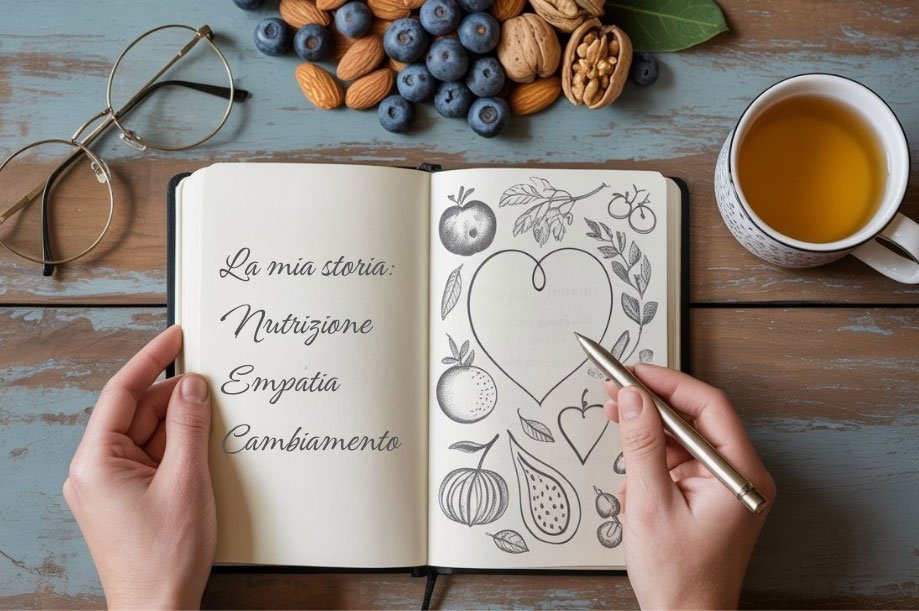 La mia storia:
Nutrizione
Empatia
Cambiamento